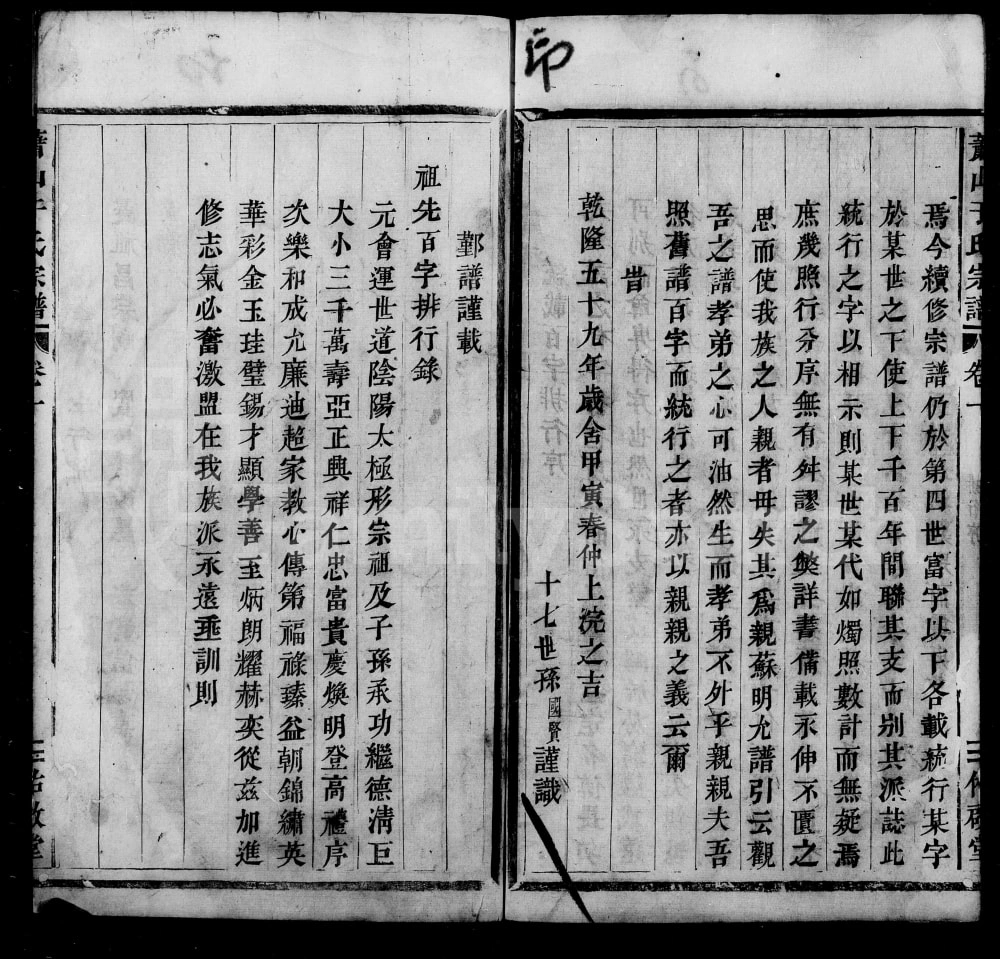 印
焉今續修宗譜仍於第四世富字以下各載統行某字
於某世之下使上下千百年間聯其支而别其派誌此
統行之字以相示則某世某代如燭照數計而無疑焉
庶幾照行分序無有舛謬之獘詳書備載永伸不匱之
思而使我族之人親者毋失其爲親蘇明允譜引云觀
吾之譜孝弟之心可油然生而孝弟不外乎親親夫吾
照舊譜百字而統行之者亦以親親之義云爾
旹
乾隆五十九年歲舍甲寅春仲上浣之吉
十七世孫國賢謹識
鄞譜謹載
祖先百字排行錄
元會運世道陰陽太極形宗祖及子孫承功繼德淸巨
大小三千萬壽亞正典祥仁忠富貴慶煥明登高禮序
次樂和成允廉迪超家教心傳第福祿臻益朝錦繡英
華彩金玉珪璧錫才顯學善至炳朗耀赫奕從兹加進
修志氣必奮激盟在我族派永遠垂訓則
氏宗譜
卷一